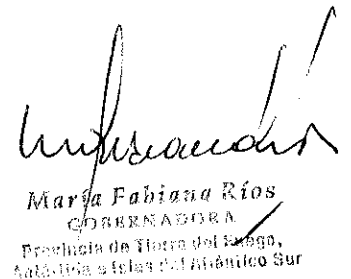 María Fabiana Ríos
GOBERNADORA
Provincia de Tierra del Fuego,
Antártida e Islas del Atlántico Sur